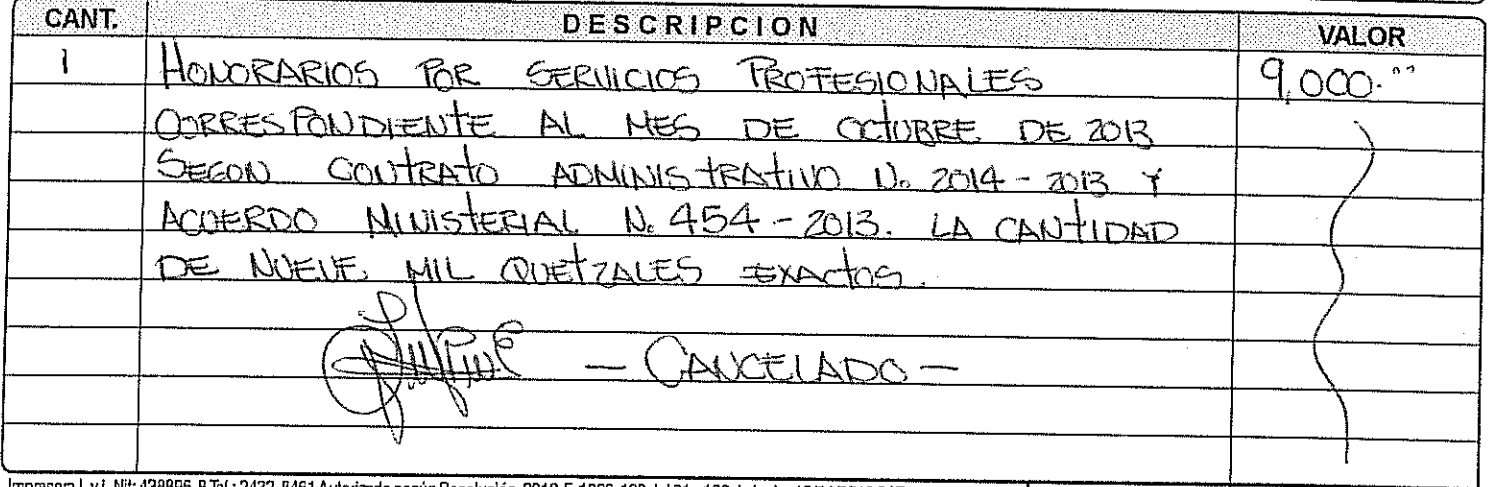 CANT. DESCRIPCION VALOR
1 HONORARIOS POR SERVICIOS PROFESIONALES 9,000.
CORRESPONDIENTE AL MES DE OCTUBRE DE 2013
SEGÚN CONTRATO ADMINISTRATIVO No. 2014-2013 Y
ACUERDO MINISTERIAL No. 454-2013. LA CANTIDAD
DE NUEVE MIL QUETZALES EXACTOS.
— CANCELADO —